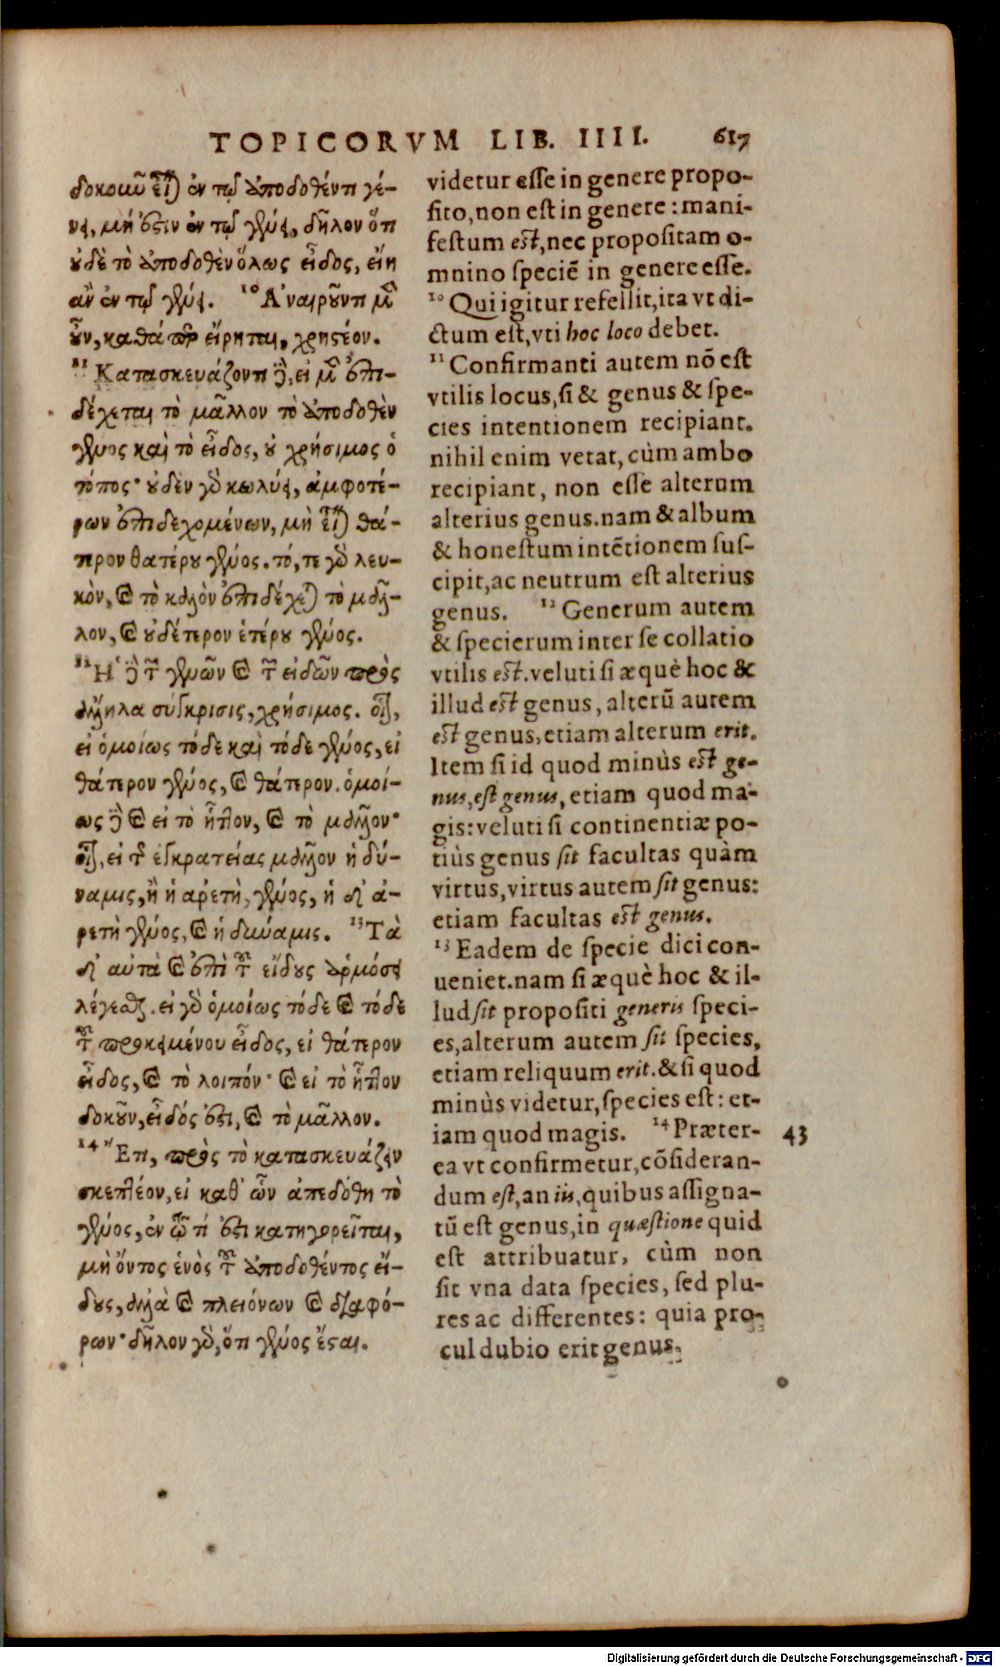 TOPICORVM LIB. IIII. 617
δοκοῦν εἶναι ἐν τῷ ὑποδοθέντι γέ-
νει, μή ἐστιν ἐν τῷ γένει, δῆλον ὅτι
οὐδὲ τὸ ὑποδοθὲν ὅλως εἶδος, εἴη
ἂν ἐν τῷ γένει. 10 Ἀναιροῦντι μὲν
οὖν, καθάπερ εἴρηται, χρηστέον.
11 Κατασκευάζοντι δὲ, εἰ μὲν ἐπι-
δέχεται τὸ μᾶλλον τὸ ὑποδοθὲν
γένος καὶ τὸ εἶδος, οὐ χρήσιμος ὁ
τόπος· οὐδὲν γὰρ κωλύει, ἀμφοτέ-
ρων ἐπιδεχομένων, μὴ εἶναι θά-
τερον θατέρου γένος. τό, τε γὰρ λευ-
κὸν, καὶ τὸ καλὸν ἐπιδέχεται τὸ μᾶλ-
λον, καὶ οὐδέτερον ἑτέρου γένος.
12 Ἡ δὲ τῶν γενῶν καὶ τῶν εἰδῶν πρὸς
ἄλληλα σύγκρισις, χρήσιμος. οἷον,
εἰ ὁμοίως τόδε καὶ τόδε γένος, εἰ
θάτερον γένος, καὶ θάτερον. ὁμοί-
ως δὲ καὶ εἰ τὸ ἧττον, καὶ τὸ μᾶλλον·
οἷον, εἰ τῆς ἐγκρατείας μᾶλλον ἡ δύ-
ναμις, ἢ ἡ ἀρετὴ, γένος, ἡ δ' ἀ-
ρετὴ γένος, καὶ ἡ δύναμις. 13 Τὰ
δ' αὐτὰ καὶ ἐπὶ τοῦ εἴδους ἁρμόσει
λέγεσθαι. εἰ γὰρ ὁμοίως τόδε καὶ τόδε
τοῦ προκειμένου εἶδος, εἰ θάτερον
εἶδος, καὶ τὸ λοιπόν· καὶ εἰ τὸ ἧττον
δοκοῦν, εἶδός ἐστι, καὶ τὸ μᾶλλον.
14 Ἔτι, πρὸς τὸ κατασκευάζειν
σκεπτέον, εἰ καθ' ὧν ἀπεδόθη τὸ
γένος, ἐν τῷ τί ἐστι κατηγορεῖται,
μὴ ὄντος ἑνὸς τοῦ ὑποδοθέντος εἴ-
δους, ἀλλὰ καὶ πλειόνων καὶ διαφό-
ρων· δῆλον γὰρ, ὅτι γένος ἔσται.
videtur esse in genere propo-
sito, non est in genere: mani-
festum est, nec propositam o-
mnino speciẽ in genere esse.
10 Qui igitur refellit, ita vt di-
ctum est, vti hoc loco debet.
11 Confirmanti autem nõ est
vtilis locus, si & genus & spe-
cies intentionem recipiant.
nihil enim vetat, cùm ambo
recipiant, non esse alterum
alterius genus. nam & album
& honestum intẽtionem sus-
cipit, ac neutrum est alterius
genus. 12 Generum autem
& specierum inter se collatio
vtilis est. veluti si æquè hoc &
illud est genus, alterũ autem
est genus, etiam alterum erit.
Item si id quod minùs est ge-
nus, est genus, etiam quod ma-
gis: veluti si continentiæ po-
tiùs genus sit facultas quàm
virtus, virtus autem sit genus:
etiam facultas est genus.
13 Eadem de specie dici con-
ueniet. nam si æquè hoc & il-
lud sit propositi generis speci-
es, alterum autem sit species,
etiam reliquum erit. & si quod
minùs videtur, species est: et-
iam quod magis. 14 Præter- 43
ea vt confirmetur, cõsideran-
dum est, an iis, quibus assigna-
tũ est genus, in quæstione quid
est attribuatur, cùm non
sit vna data species, sed plu-
res ac differentes: quia pro-
cul dubio erit genus.
Digitalisierung gefördert durch die Deutsche Forschungsgemeinschaft - DFG